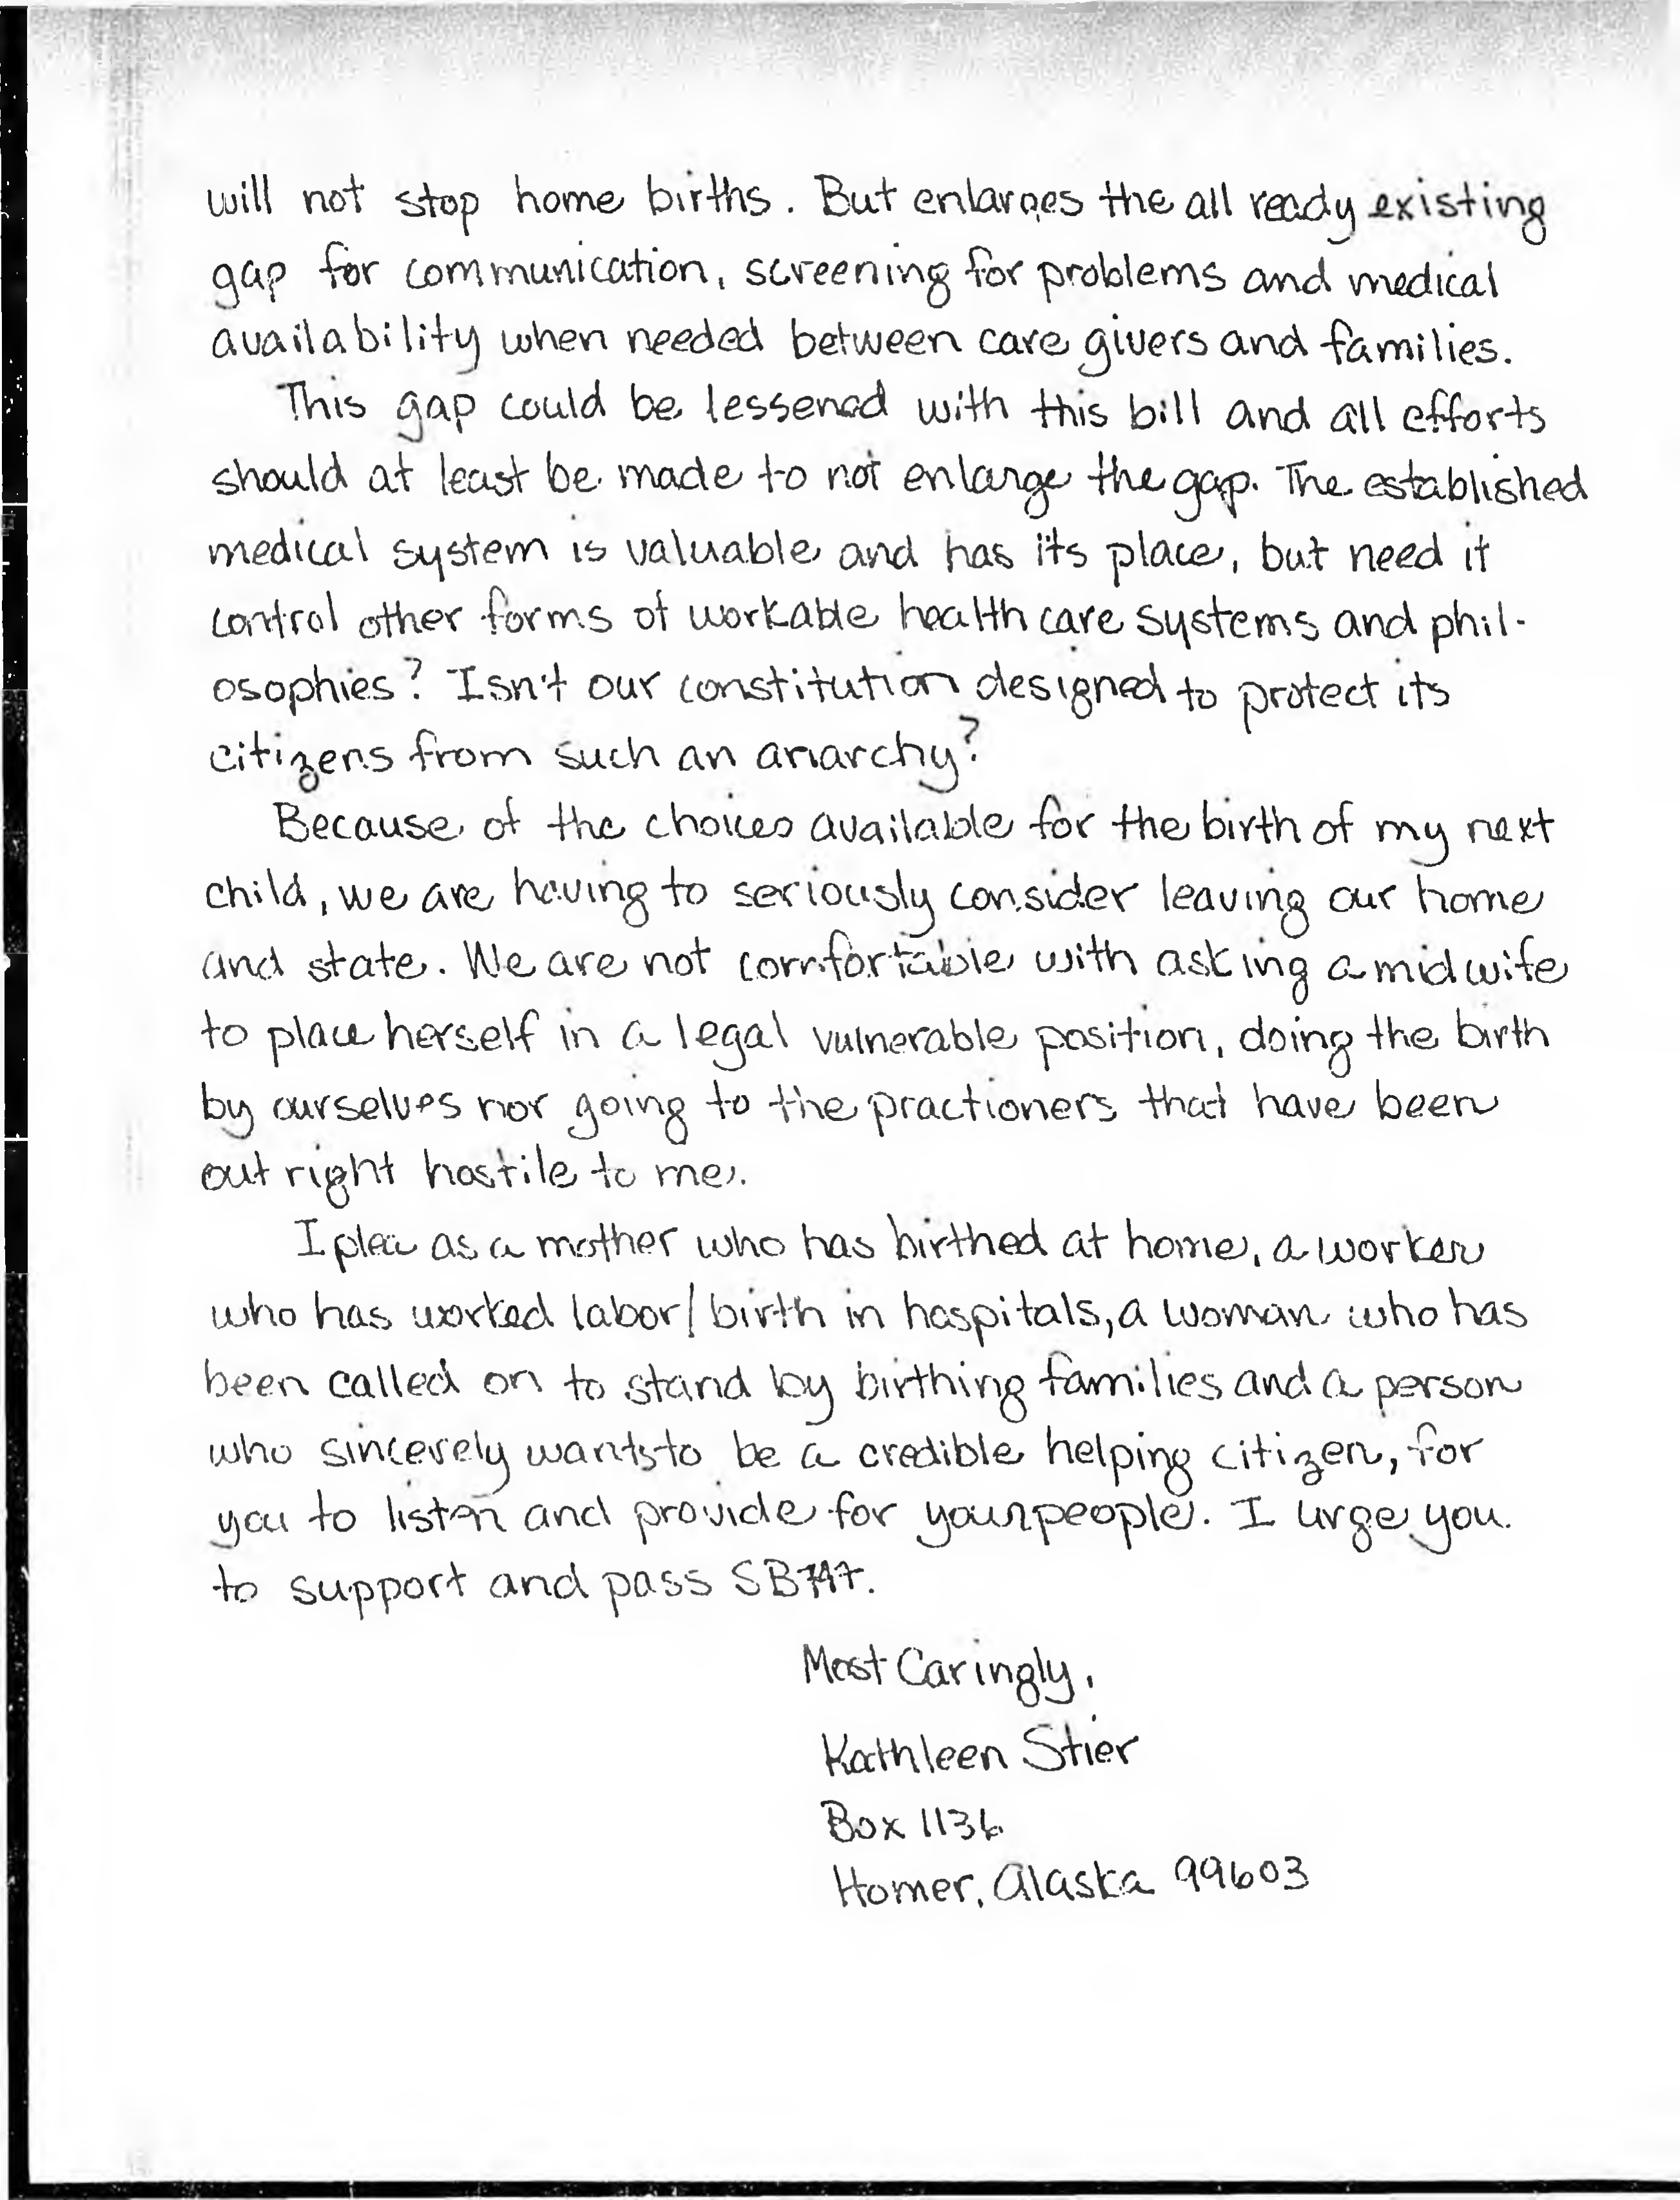 will not stop home births. But enlarges the all ready existing
gap for communication, screening for problems and medical
availability when needed between care givers and families.
This gap could be lessened with this bill and all efforts
should at least be made to not enlarge the gap. The established
medical system is valuable and has its place, but need it
control other forms of workable health care systems and phil-
osophies? Isn't our constitution designed to protect its
citizens from such an anarchy?
Because of the choices available for the birth of my next
child, we are having to seriously consider leaving our home
and state. We are not comfortable with asking a midwife
to place herself in a legal vulnerable position, doing the birth
by ourselves nor going to the practioners that have been
out right hostile to me.
I plea as a mother who has birthed at home, a worker
who has worked labor/birth in hospitals, a woman who has
been called on to stand by birthing families and a person
who sincerely wants to be a credible helping citizen, for
you to listen and provide for your people. I urge you
to support and pass SB
Most Caringly,
Kathleen Stier
Box 1136
Homer, Alaska 99603